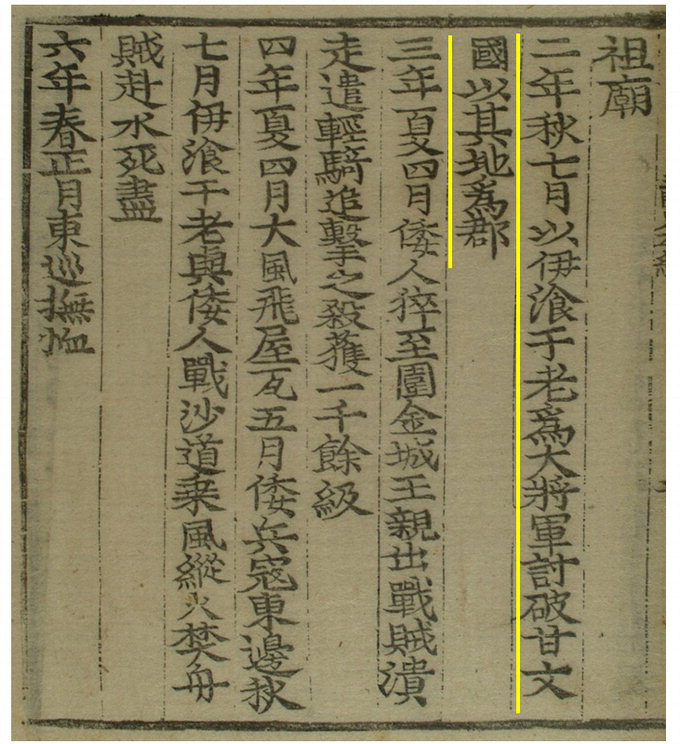 祖廟
二年秋七月以伊湌于老爲大將軍討破甘文
國以其地爲郡
三年夏四月倭人猝至圍金城王親出戰賊潰
走遣輕騎追擊之殺獲一千餘級
四年夏四月大風飛屋瓦五月倭兵寇東邊秋
七月伊湌于老與倭人戰沙道乗風縱火焚舟
賊赴水死盡
六年春正月東巡撫恤